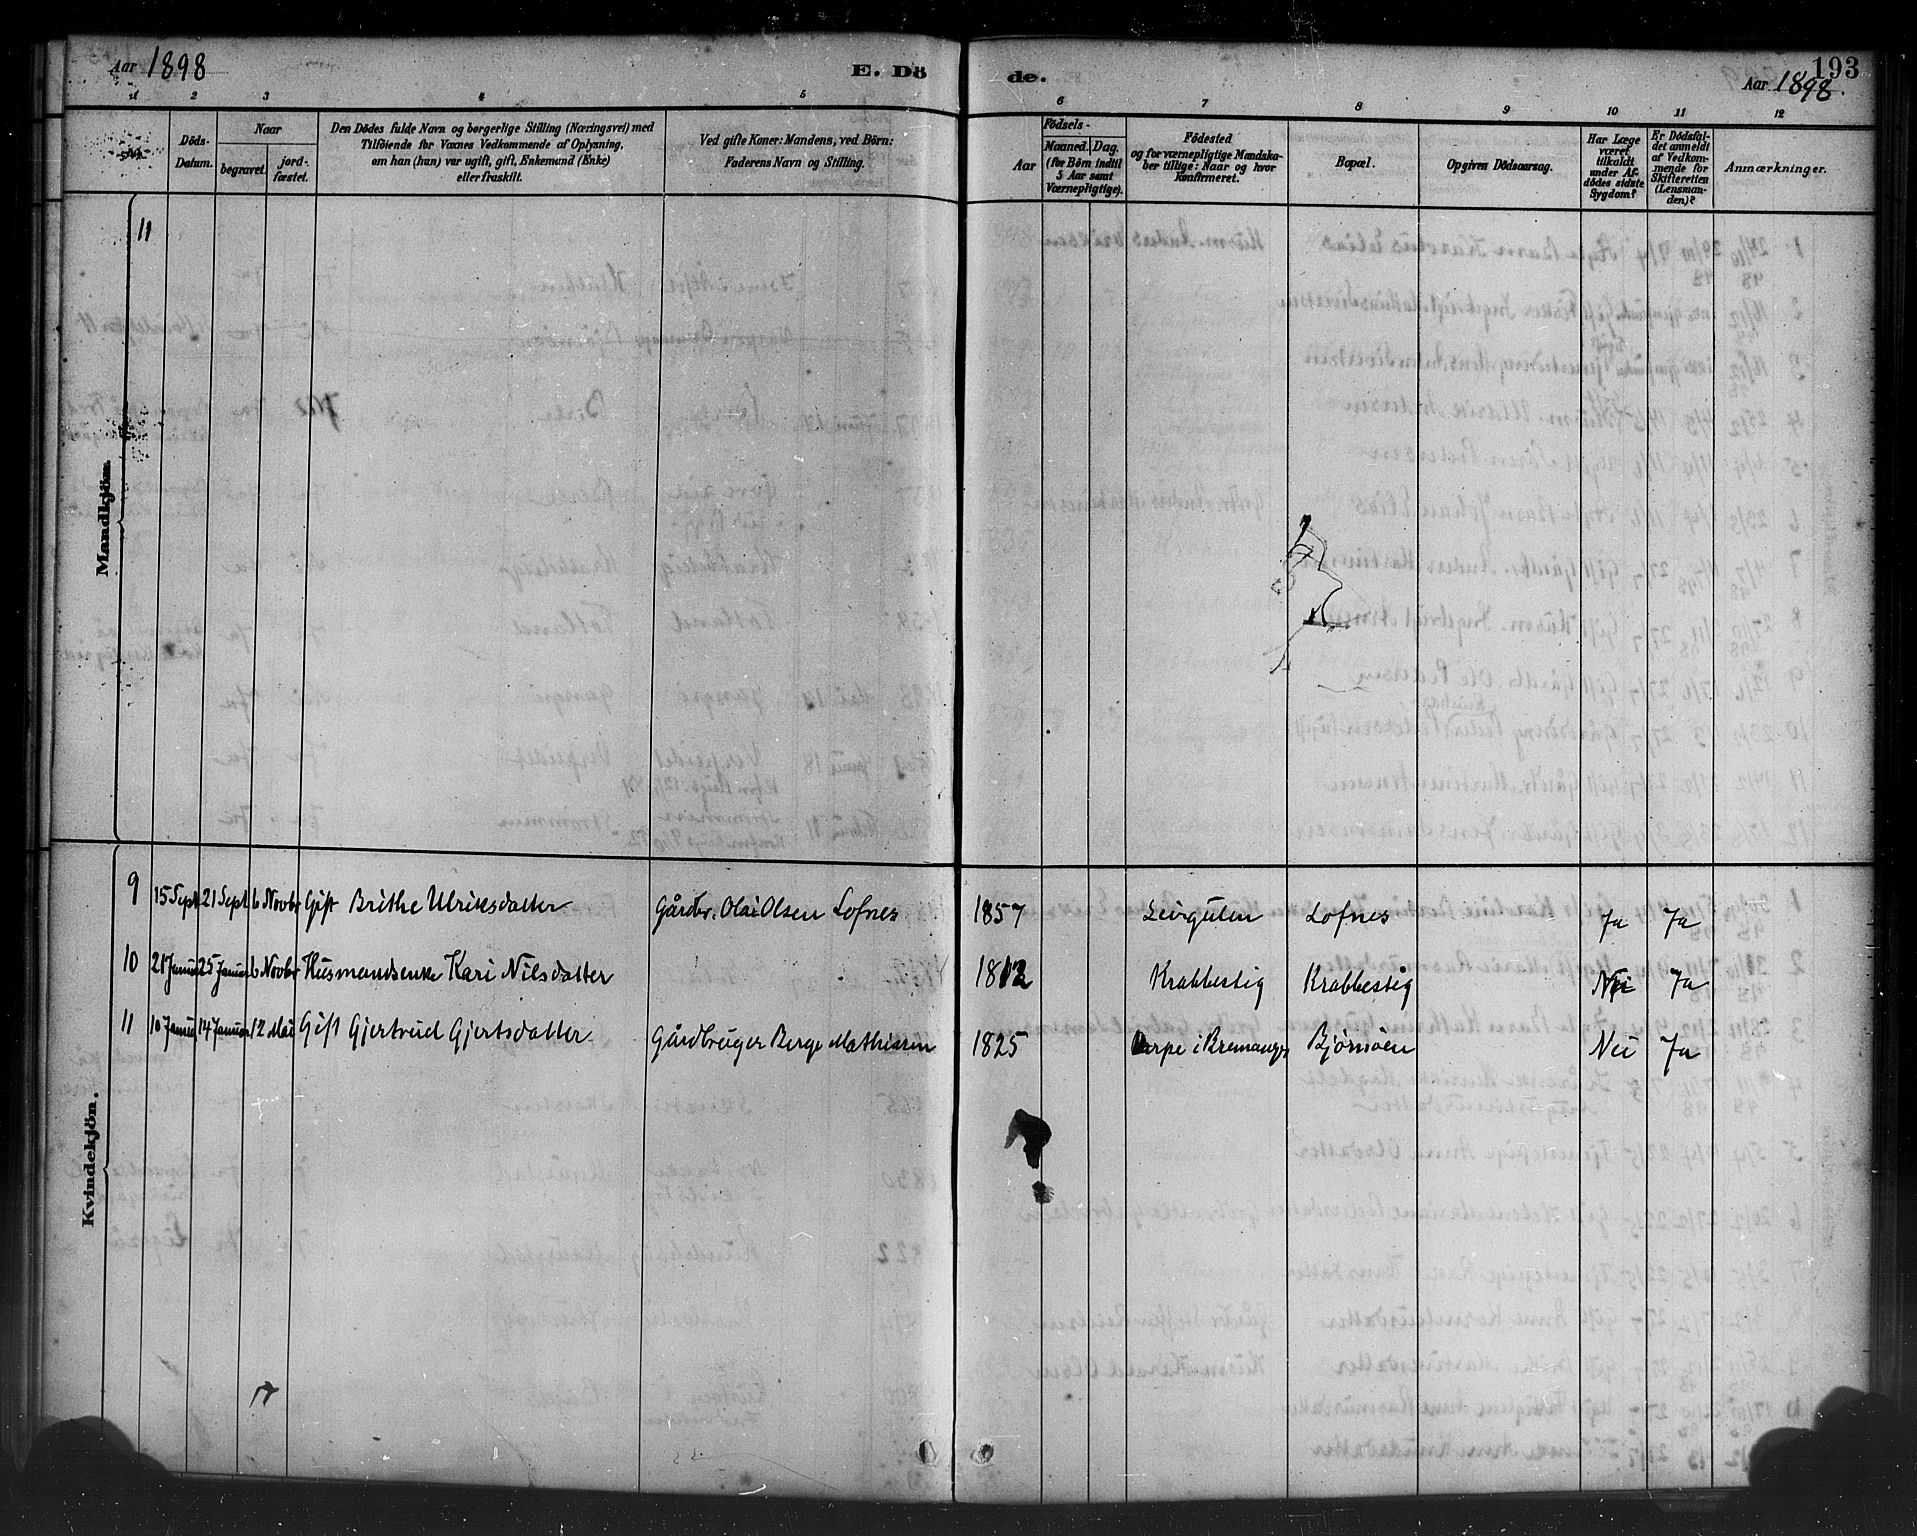 Aar 1898
E. Dö
de.
193
Aar 1898.
1 2 3 4 5 6 7 8 9 10 11 12
No.
Döds-
Datum.
Naar
begravet.
jord-
fæstet.
Den Dödes fulde Navn og borgerlige Stilling (Næringsvei) med
Tilföiende for Voxnes Vedkommende af Oplysning,
om han (hun) var ugift, gift, Enkemand (Enke)
eller fraskilt.
Ved gifte Koner: Mandens, ved Börn:
Faderens Navn og Stilling.
Födsels-
Aar
Maaned.
Dag.
(for Börn indtil
5 Aar samt
Værnepligtige).
Födested
og for værnepligtige Mandska-
ber tillige: Naar og hvor
konfirmeret.
Bopæl.
Opgiven Dödsaarsag.
Har Læge
været
tilkaldt
under Af-
dödes sidste
Sygdom?
Er Dödsfal-
det anmeldt
af Vedkom-
mende for
Skifteretten
(Lensman-
den)?
Anmærkninger.
Mandkjön.
11
Kvindekjön.
9 15 Sept 21 Sept 6 Novbr Gift Brithe Ulriksdatter Gårdbr. Olai Olsen Lofnes 1857 Leirgulen Lofnes Ja Ja
10 21 Januar 25 Januar 6 Novbr Husmandsenke Kari Nilsdatter 1812 Krabbestig Krabbestig Nei Ja
11 10 Januar 14 Januar 12 Mai Gift Gjertrud Gjertsdatter Gårdbruger Berge Mathissen 1825 i Bremanger Bjørnøen Nei Ja